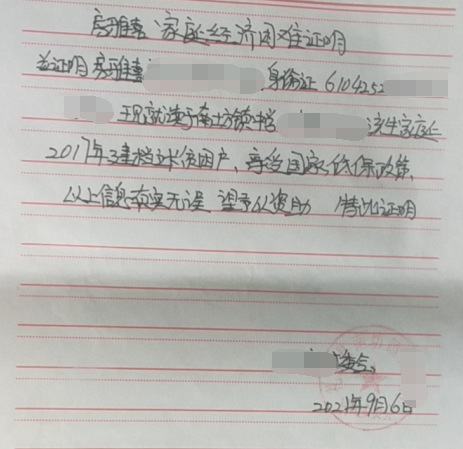 家庭经济困难证明
兹证明房雅熹 身份证6104252
现就读于南坊镇中 该生家庭
2017年建档立卡贫困户、享受国家低保政策,
以上信息真实无误 望予以资助 特此证明
委会
2021年9月6日